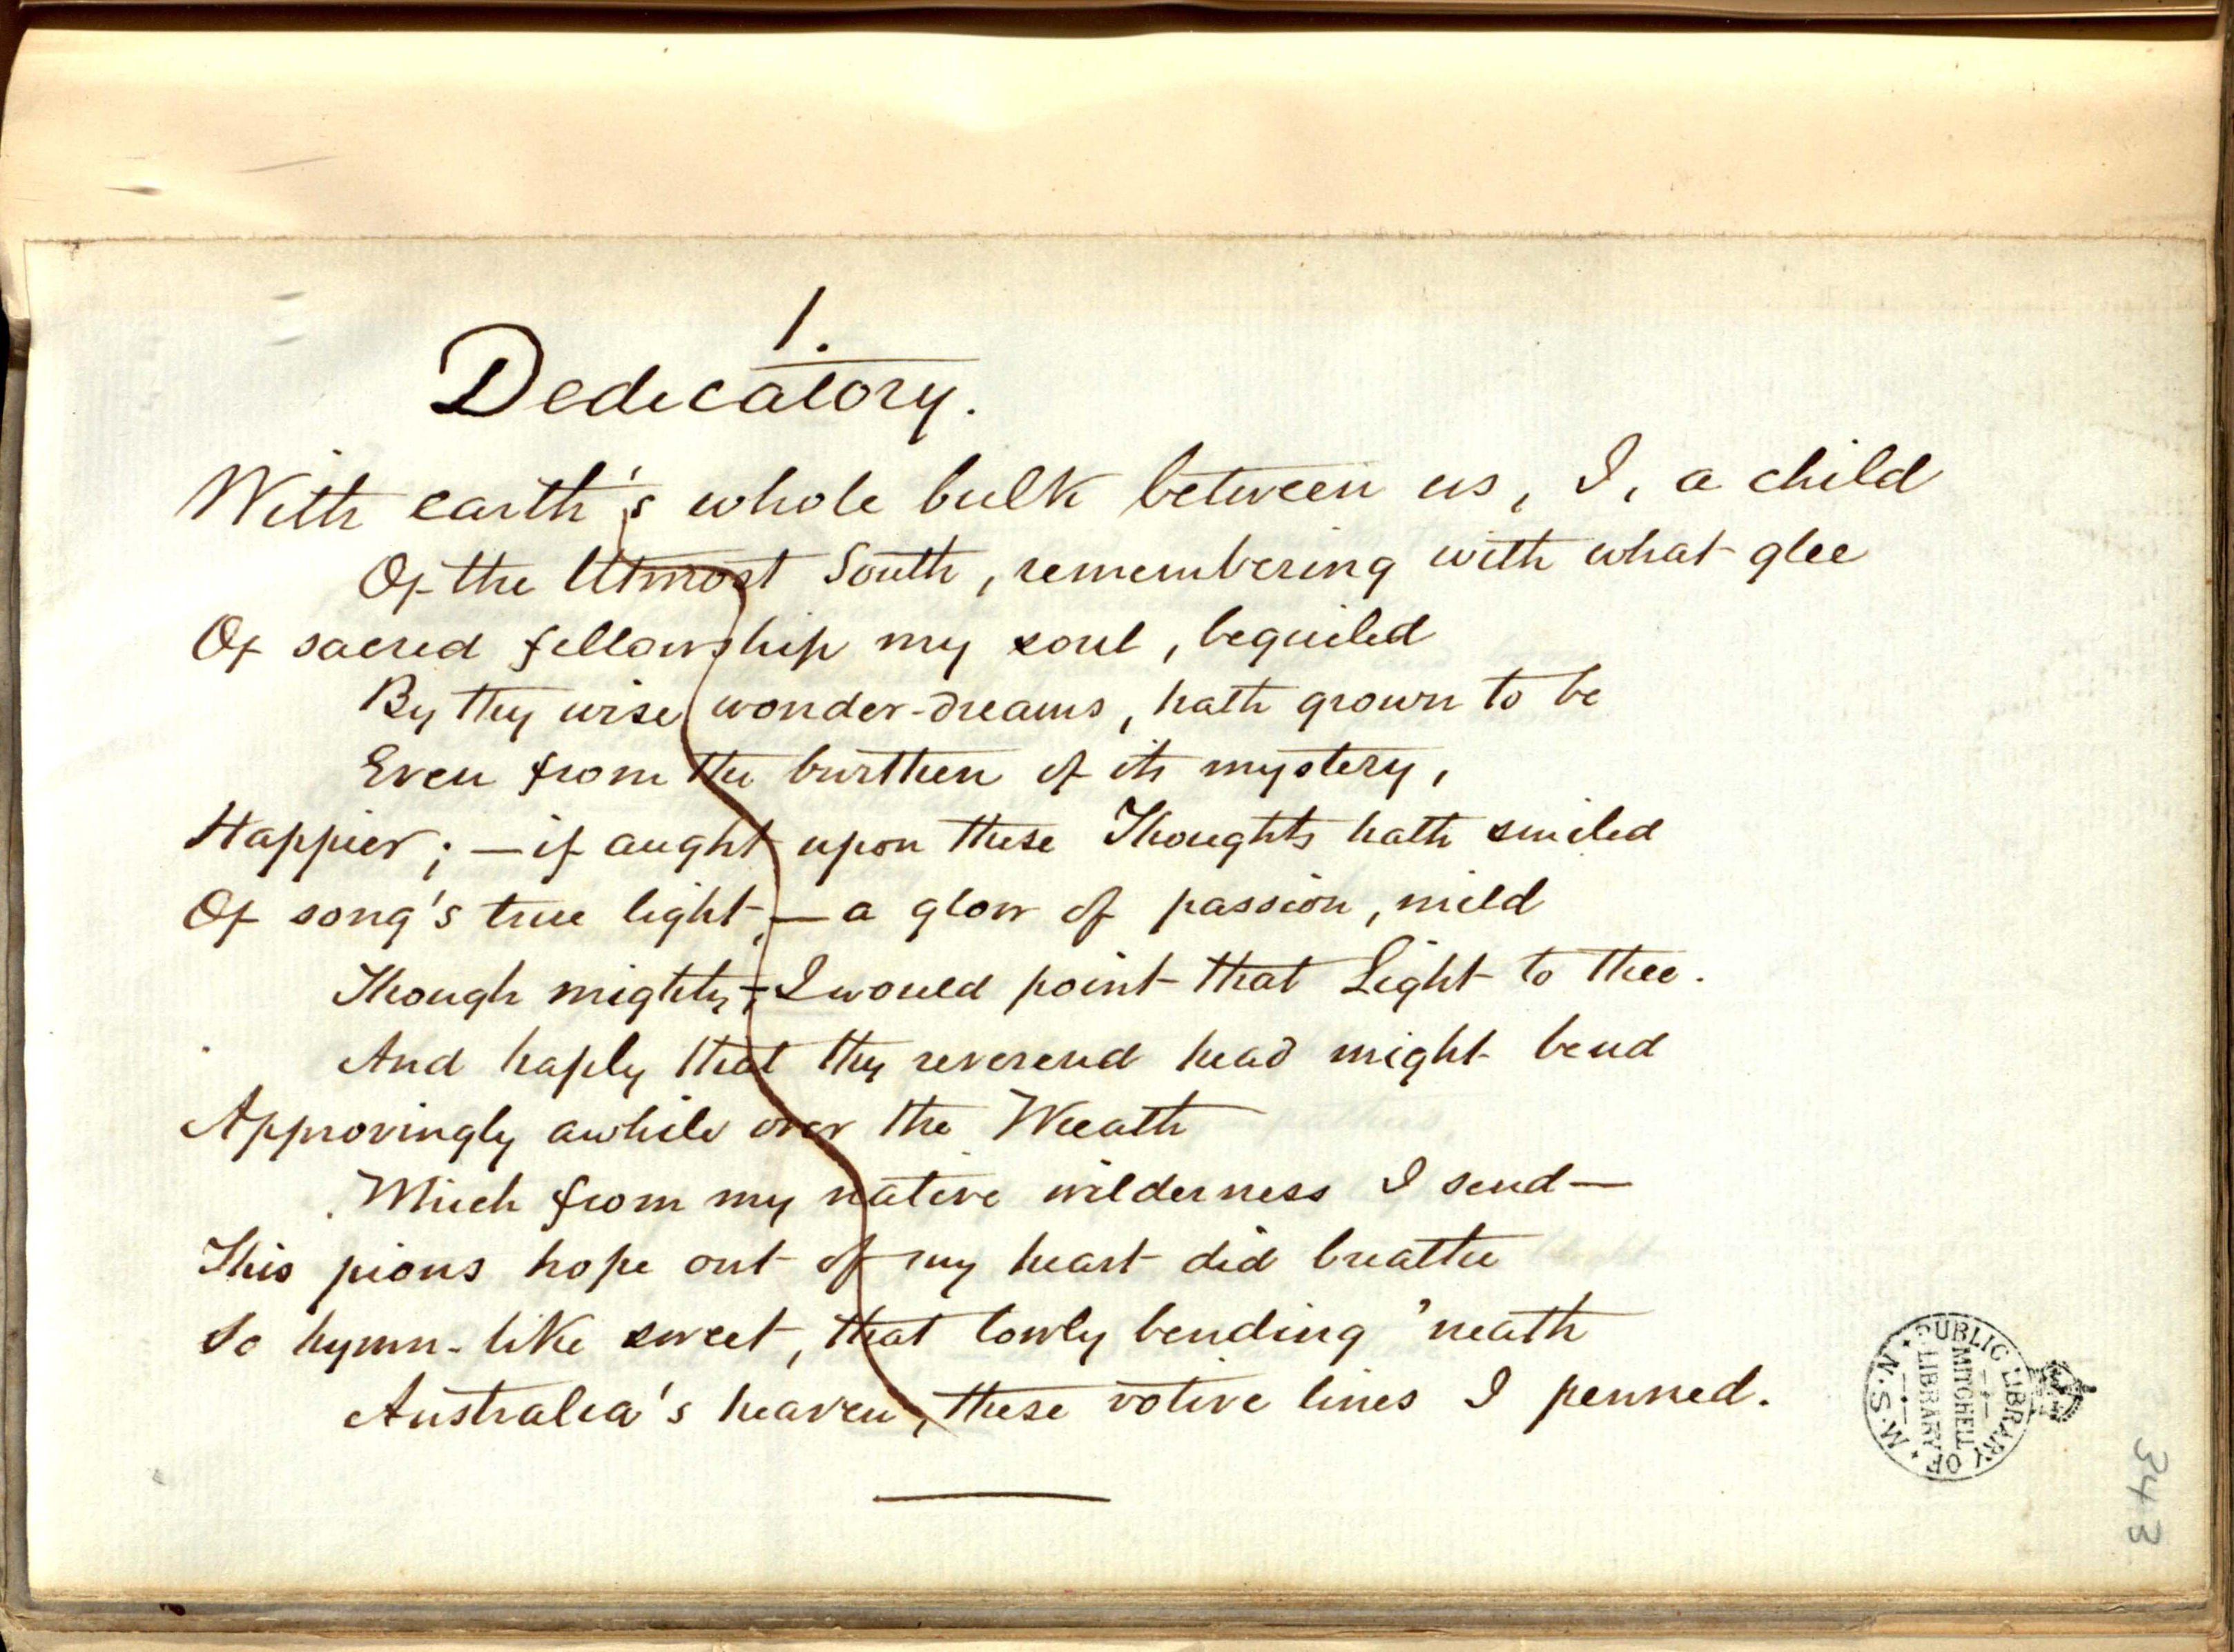 1.
Dedicatory.
With earth's whole bulk between us, I, a child
Of the Utmost South, remembering with what glee
Of sacred fellowship my soul, beguiled
By thy wise wonder-dreams, hath grown to be
Even from the burthen of its mystery,
Happier; — if aught upon these Thoughts hath smiled
Of song's true light, — a glow of passion, mild
Though mighty, — I would point that Light to thee.
And haply that thy reverend head might bend
Approvingly awhile over the Wreath
Which from my native wilderness I send —
This pious hope out of my heart did breathe
So hymn-like sweet, that lowly bending 'neath
Australia's heaven, these votive lines I penned.
PUBLIC LIBRARY OF N.S.W.
MITCHELL
LIBRARY
343